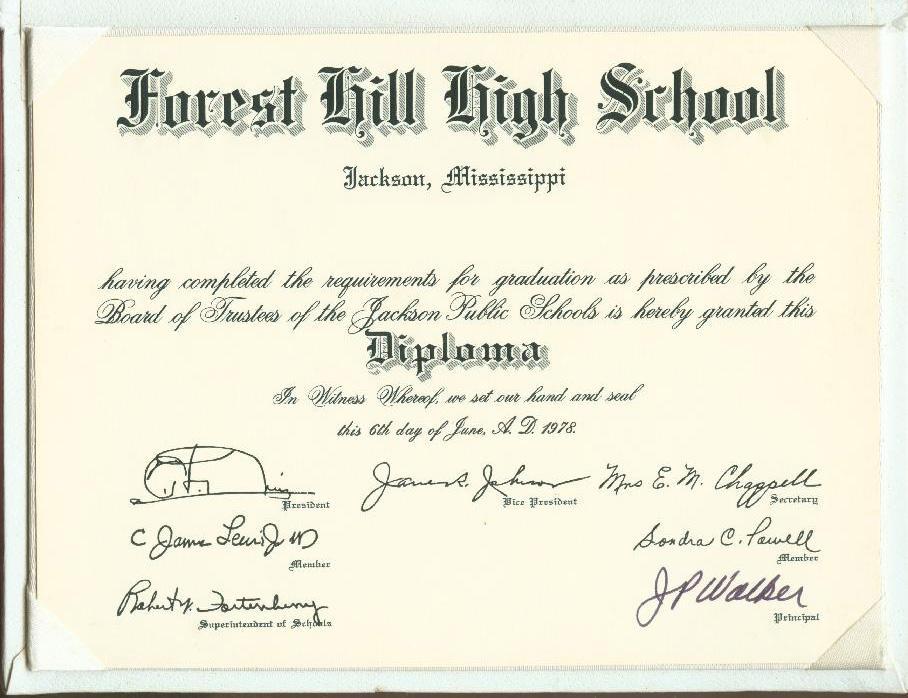 Forest Hill High School
Jackson, Mississippi
having completed the requirements for graduation as prescribed by the
Board of Trustees of the Jackson Public Schools is hereby granted this
Diploma
In Witness Whereof, we set our hand and seal
this 6th day of June, A. D. 1978.
President
James R. Johnson
Vice President
Mrs E. M. Chappell
Secretary
C James Lewis Jr MD
Member
Sondra C. Powell
Member
Robert N. Fortenberry
Superintendent of Schools
J P Walker
Principal